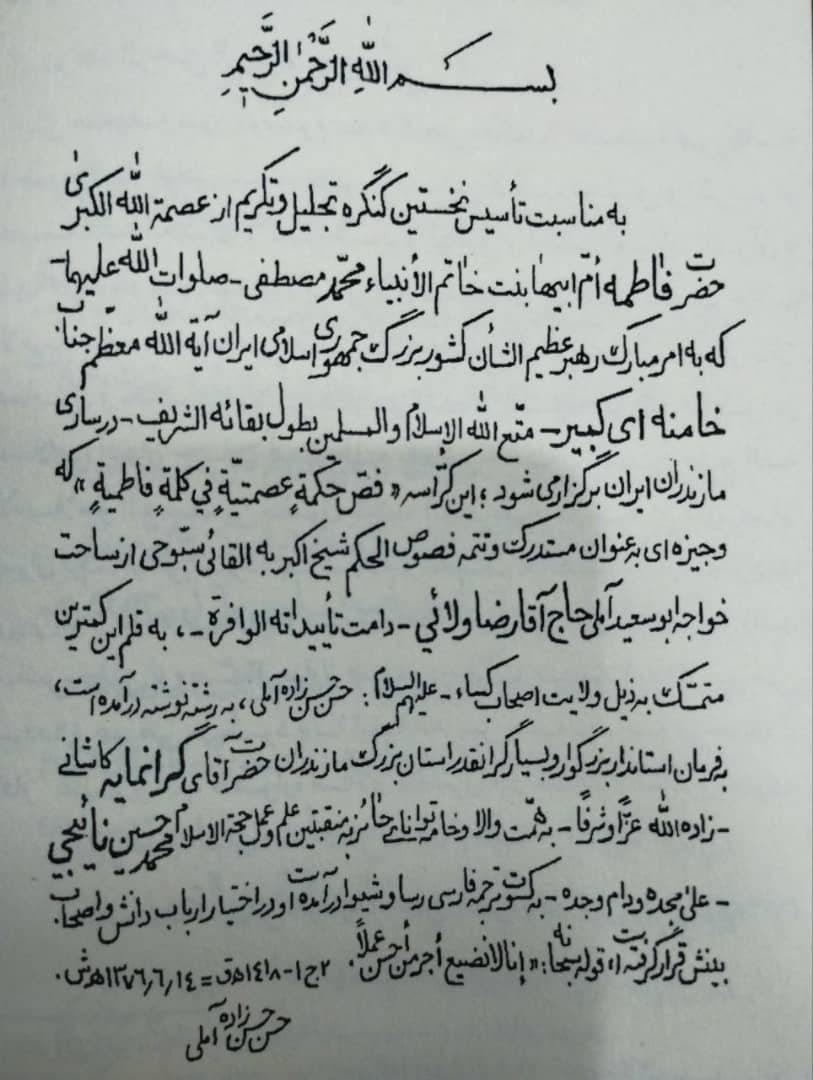 بسم اللّٰه الرَّحمٰنِ الرَّحیمِ
به مناسبت تأسیس نخستین کنگره تجلیل و تکریم از عصمة اللّٰه الکبریٰ
حضرت فاطمه أمّ ابیها بنت خاتم الأنبیاء محمّد مصطفی - صلوات اللّٰه علیهما -
که به امر مبارک رهبر عظیم الشأن کشور بزرگ جمهوری اسلامی ایران آیة اللّٰه معظّم جناب
خامنه ای کبیر - متّع اللّٰه الإسلام والمسلمین بطول بقائه الشریف - در ساری
مازندران ایران برگزار می شود ؛ این کرّاسه « فصّ حکمةٍ عصمتیّةٍ في کلمةٍ فاطمیةٍ » که
وجیزه ای به عنوان مستدرک و تتمه فصوص الحکم شیخ اکبر به القائی سبّوحی از ساحت
خواجه ابو سعید آملی حاج آقا رضا ولائي - دامت تأییداته الوافرة - ، به قلم این کمترین
متمسّک به ذیل ولایت اصحاب کساء - علیهم السلام : حسن حسن زاده آملی ، به رشته نوشته درآمده است ،
به فرمان استاندار بزرگوار و بسیار گرانقدر استان بزرگ مازندران حضرت آقای گرانمایه کاشانے
- زاده اللّٰه عزًّا و شرفًا - به همّت والا و خامه توانای حائز به منقبتین علم و عمل حجة الاسلام محمد حسین نائیجی
- علیٰ مجده و دام وجده - به کسوت ترجمه فارسی رسا و شیوا درآمده است و در اختیار ارباب دانش و اصحاب
بینش قرار گرفته است ، قوله سبحانه : « إنا لا نضیع أجر من أحسن عملاً .
۲ ج ۱ - ۱۴۱۸ هـ ق = ۱۴ ر ۶ ر ۱۳۷۶ هـ ش .
حسن حسن زاده آملی